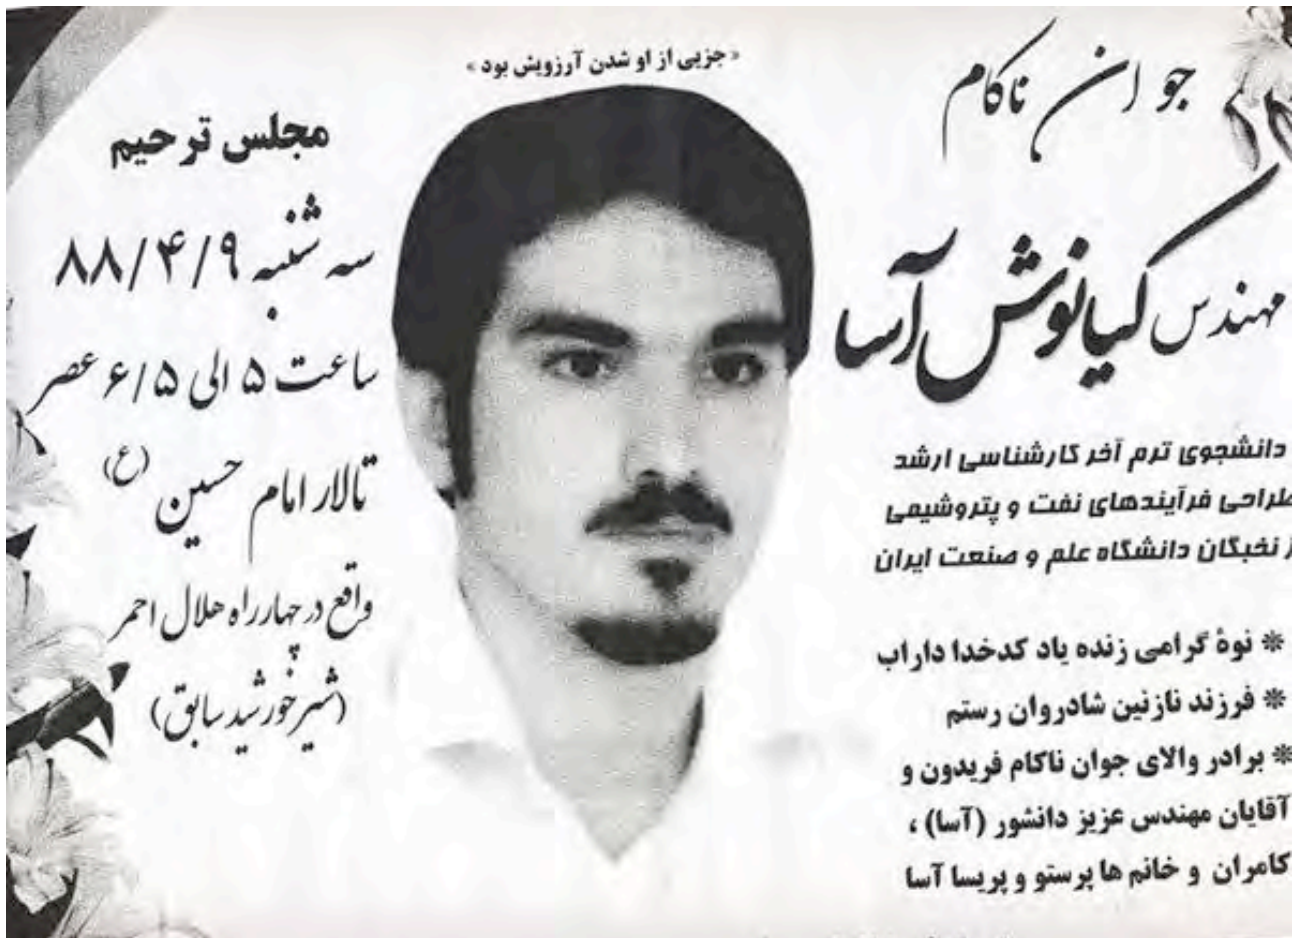 «جزیی از او شدن آرزویش بود»
جوان ناکام
مهندس کیانوش آسا
دانشجوی ترم آخر کارشناسی ارشد
طراحی فرآیندهای نفت و پتروشیمی
از نخبگان دانشگاه علم و صنعت ایران
* نوهٔ گرامی زنده یاد کدخدا داراب
* فرزند نازنین شادروان رستم
* برادر والای جوان ناکام فریدون و
آقایان مهندس عزیز دانشور (آسا) ،
کامران و خانم ها پرستو و پریسا آسا
مجلس ترحیم
سه شنبه ۸۸/۴/۹
ساعت ۵ الی ۶/۵ عصر
تالار امام حسین (ع)
واقع در چهارراه هلال احمر
(شیر خورشید سابق)